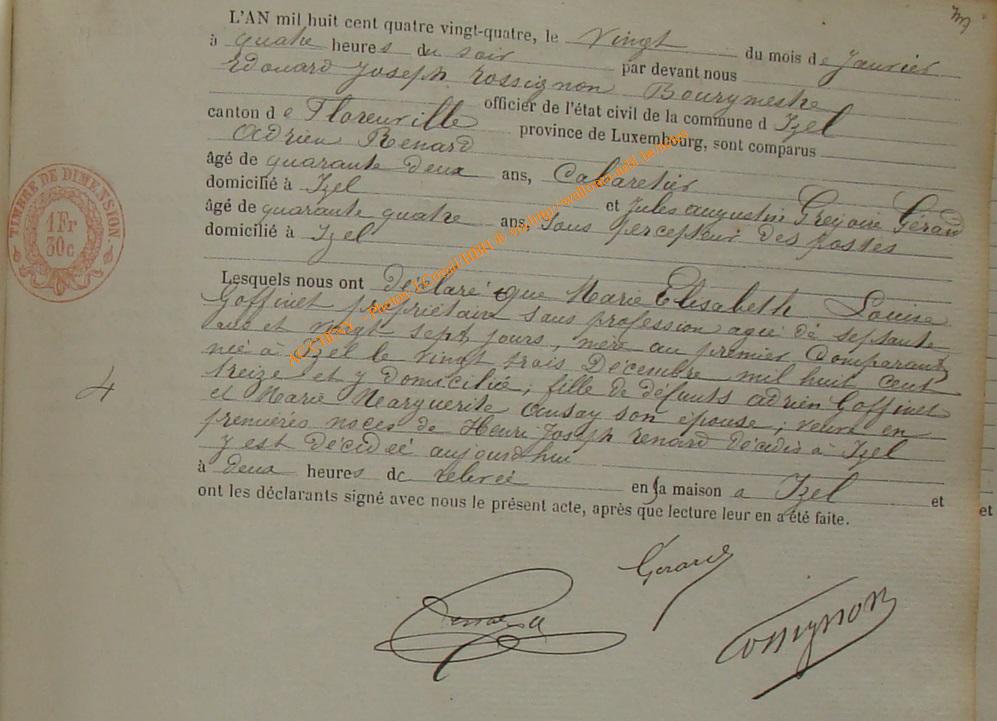 L'AN mil huit cent quatre vingt-quatre, le vingt du mois de Janvier
à quatre heures du soir par devant nous
Edouard Joseph Rossignon Bourgmestre
officier de l'état civil de la commune d Izel
canton de Florenville province de Luxembourg, sont comparus
Adrien Renard
âgé de quarante deux ans, Cabaretier
domicilié à Izel et Jules Augustin Grégoire Gérard
âgé de quarante quatre ans, Sous percepteur des postes
domicilié à Izel
Lesquels nous ont déclaré que Marie Elisabeth Louise
Goffinet propriétaire sans profession agée de septante
ans et vingt sept jours, mère au premier Comparant,
née à Izel le vingt trois Décembre mil huit cent
treize et y domiciliée, fille de défunts Adrien Goffinet
et Marie Marguerite Ansay son épouse; veuve en
premières noces de Henri Joseph Renard décédé à Izel
y est décédée aujourd'hui
à deux heures de relevée en sa maison a Izel et
ont les déclarants signé avec nous le présent acte, après que lecture leur en a été faite.
et
4
TIMBRE DE DIMENSION
1 Fr
30c
Gérard
Renard
Rossignon